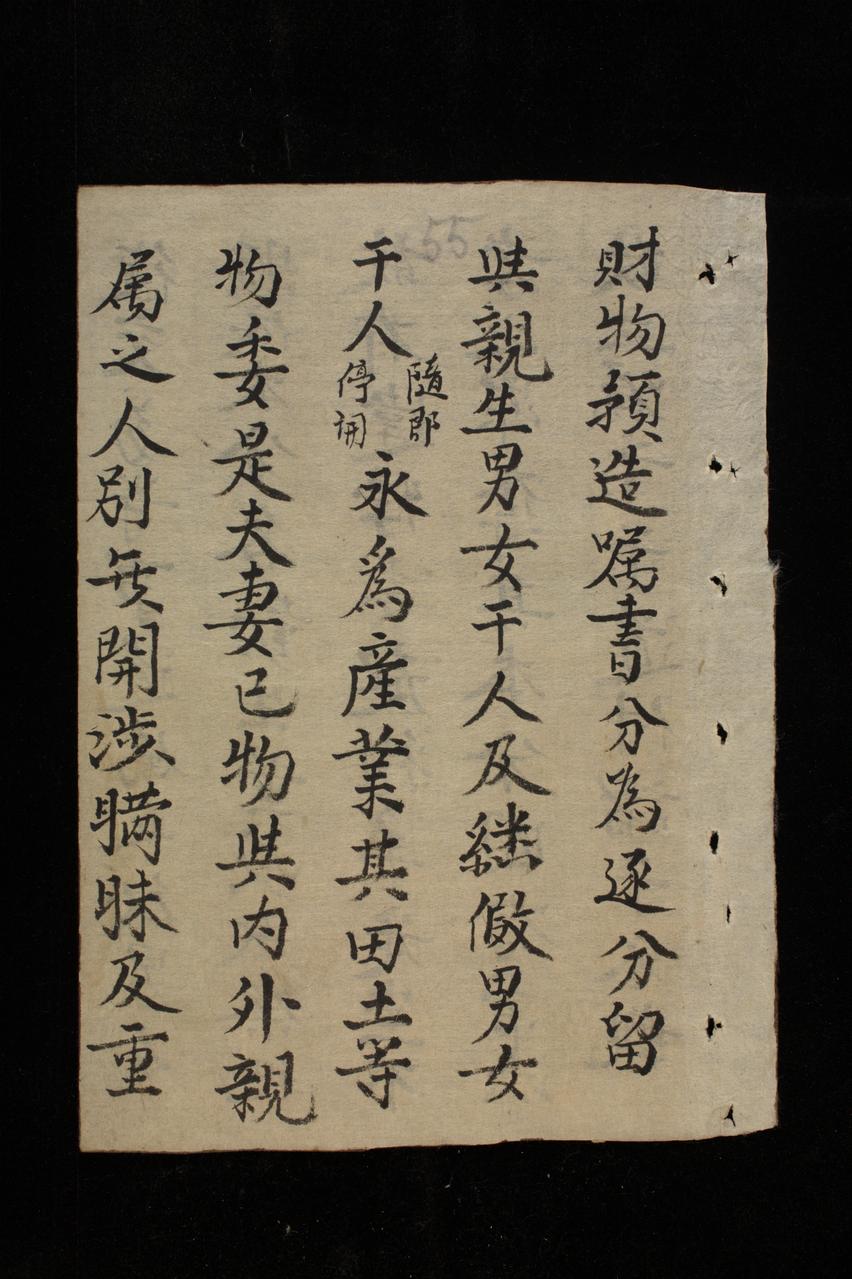 55
財物預造嘱書分為逐分留
與親生男女干人及継假男女
干人隨即停開永爲產業其田土等
物委是夫妻己物與内外親
属之人别無開涉瞞昧及重